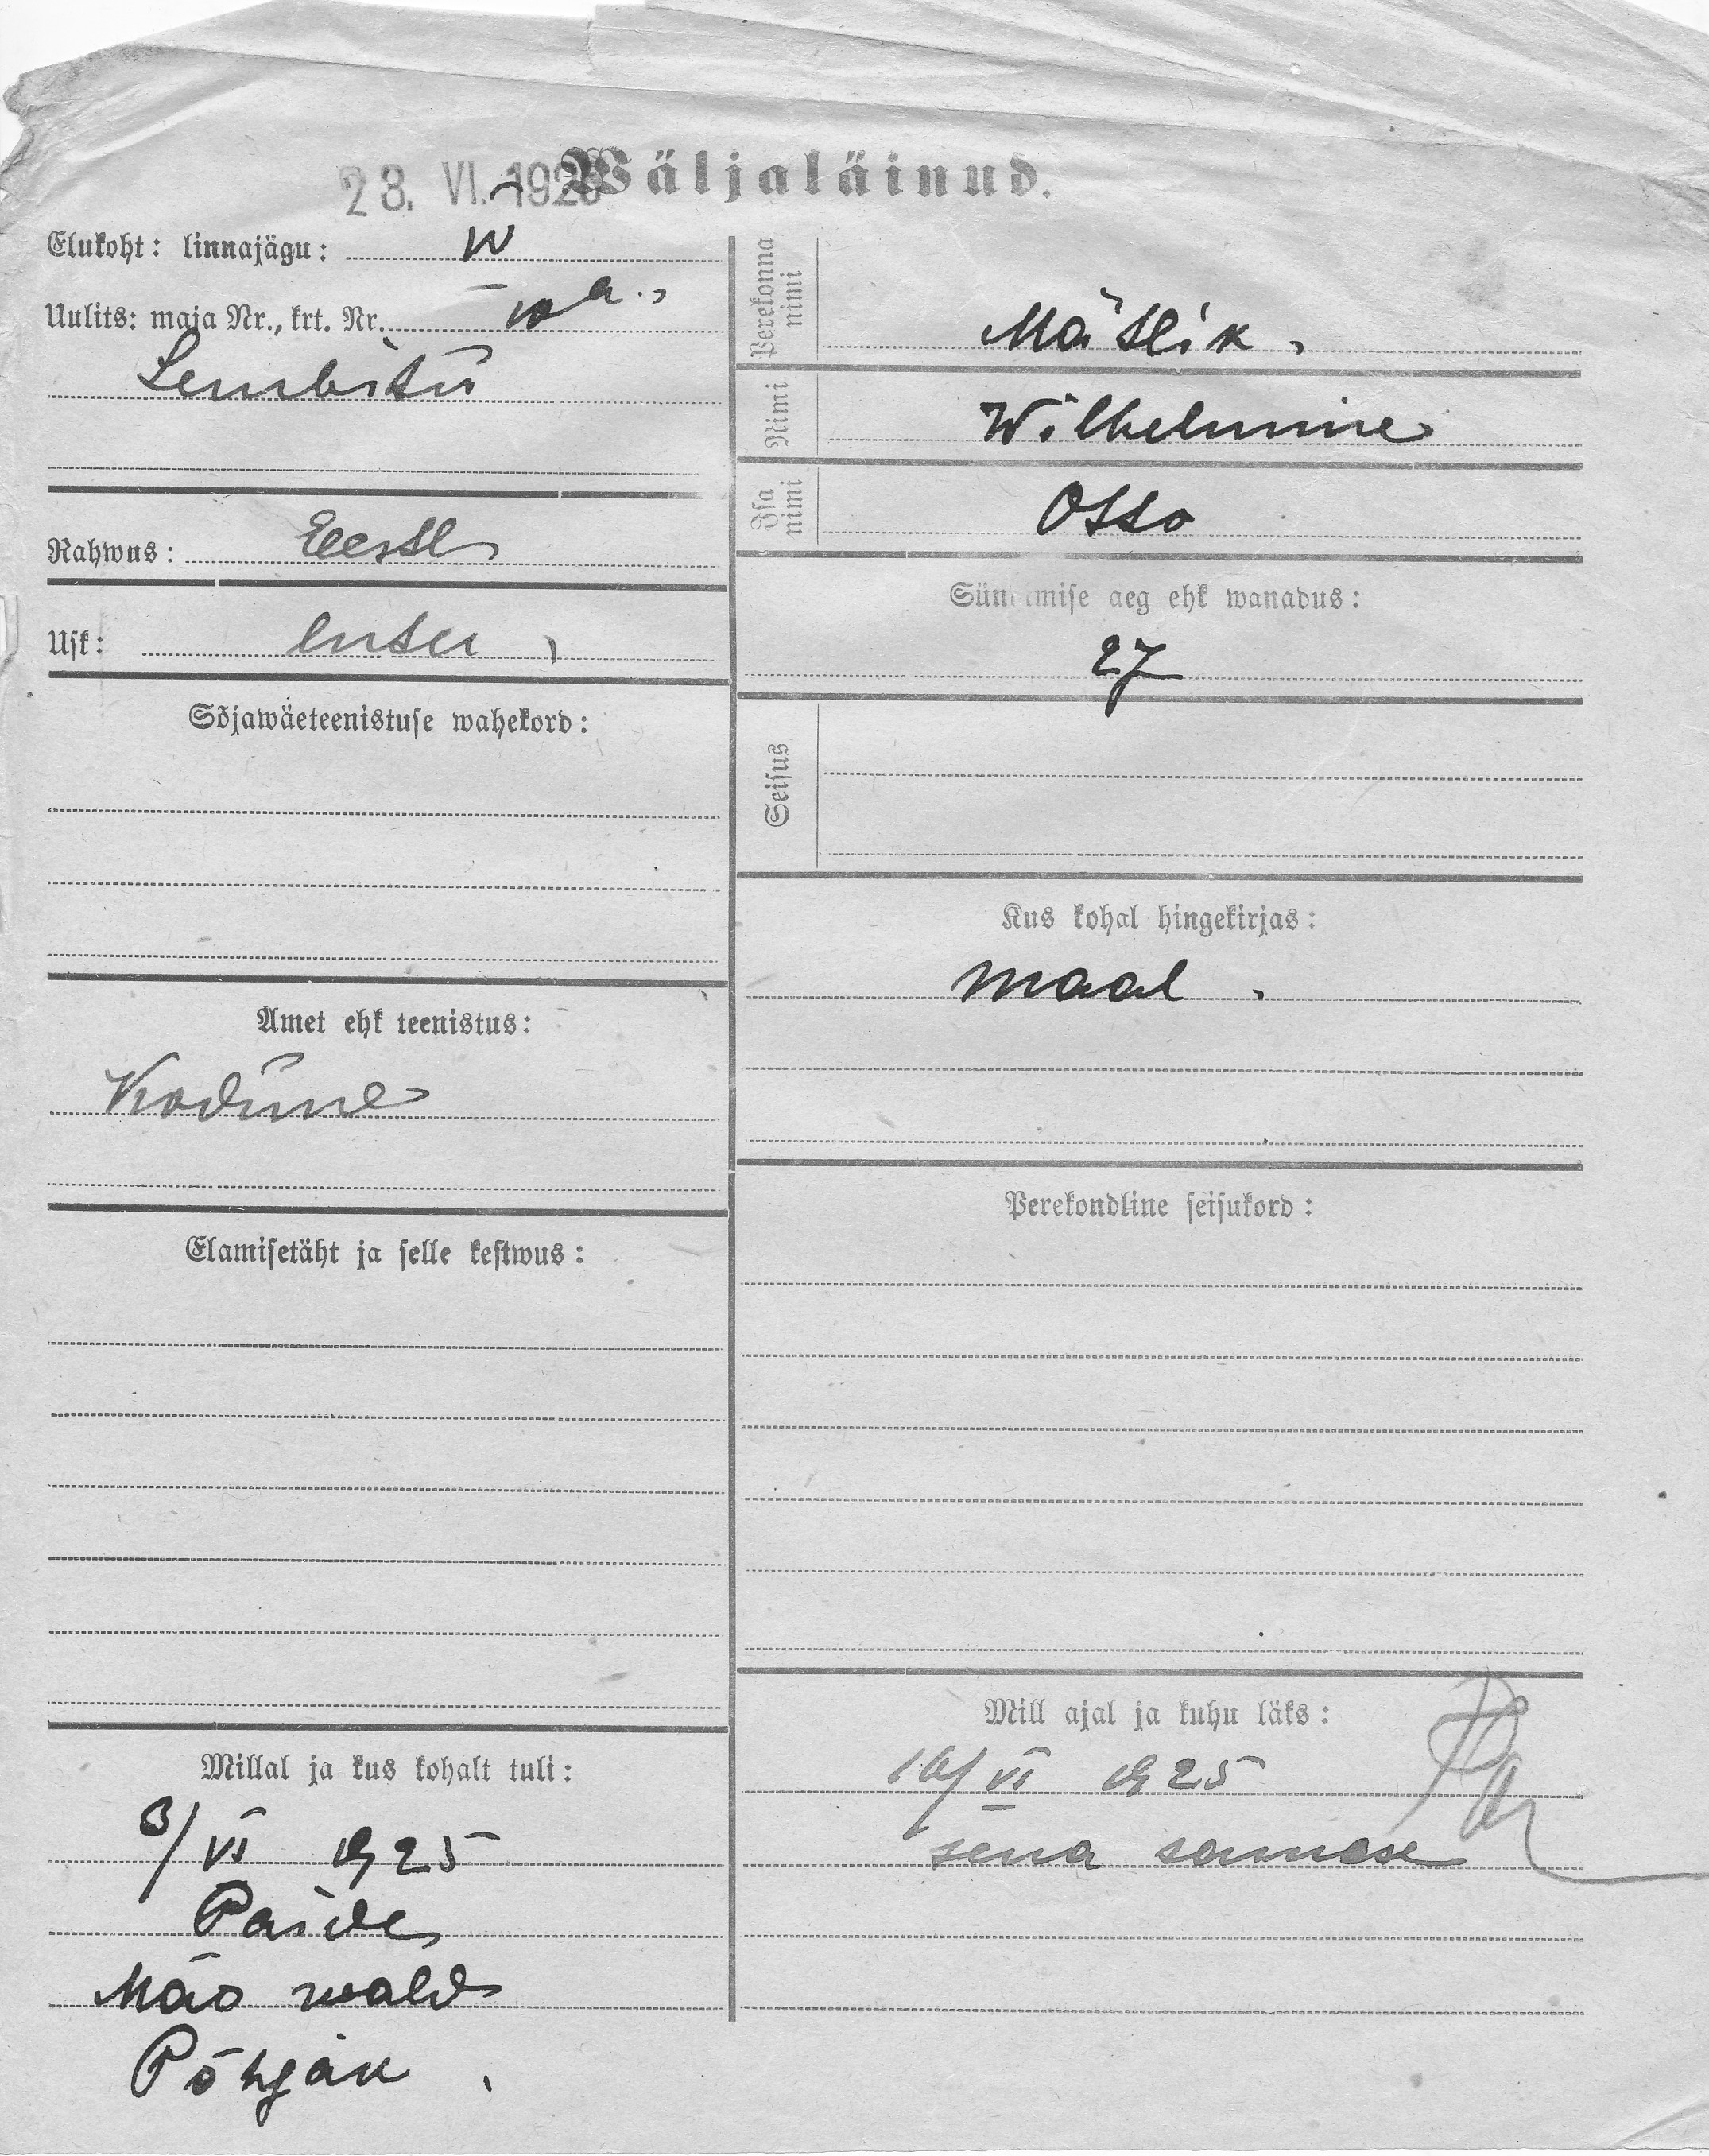 23. VI. 192
Wäljaläinud.
Elukoht: linnajägu: W
Uulits: maja Nr., krt. Nr. 10 a.,
Lembitu
Rahwus: Eestl
Usk: luteu
Sõjawäeteenistuse wahekord:
Amet ehk teenistus:
Kodune
Elamisetäht ja selle kestwus:
Millal ja kus kohalt tuli:
3/VI 1925
Paide
Mäo wald
Põhjak
Perekonna nimi
Mätlik.
Nimi
Wilhelmine
Isa nimi
Otto
Sündimise aeg ehk wanadus:
27
Seisus
Kus kohal hingekirjas:
maal.
Perekondline seisukord:
Mill ajal ja kuhu läks:
10/VI 1925
sena samase